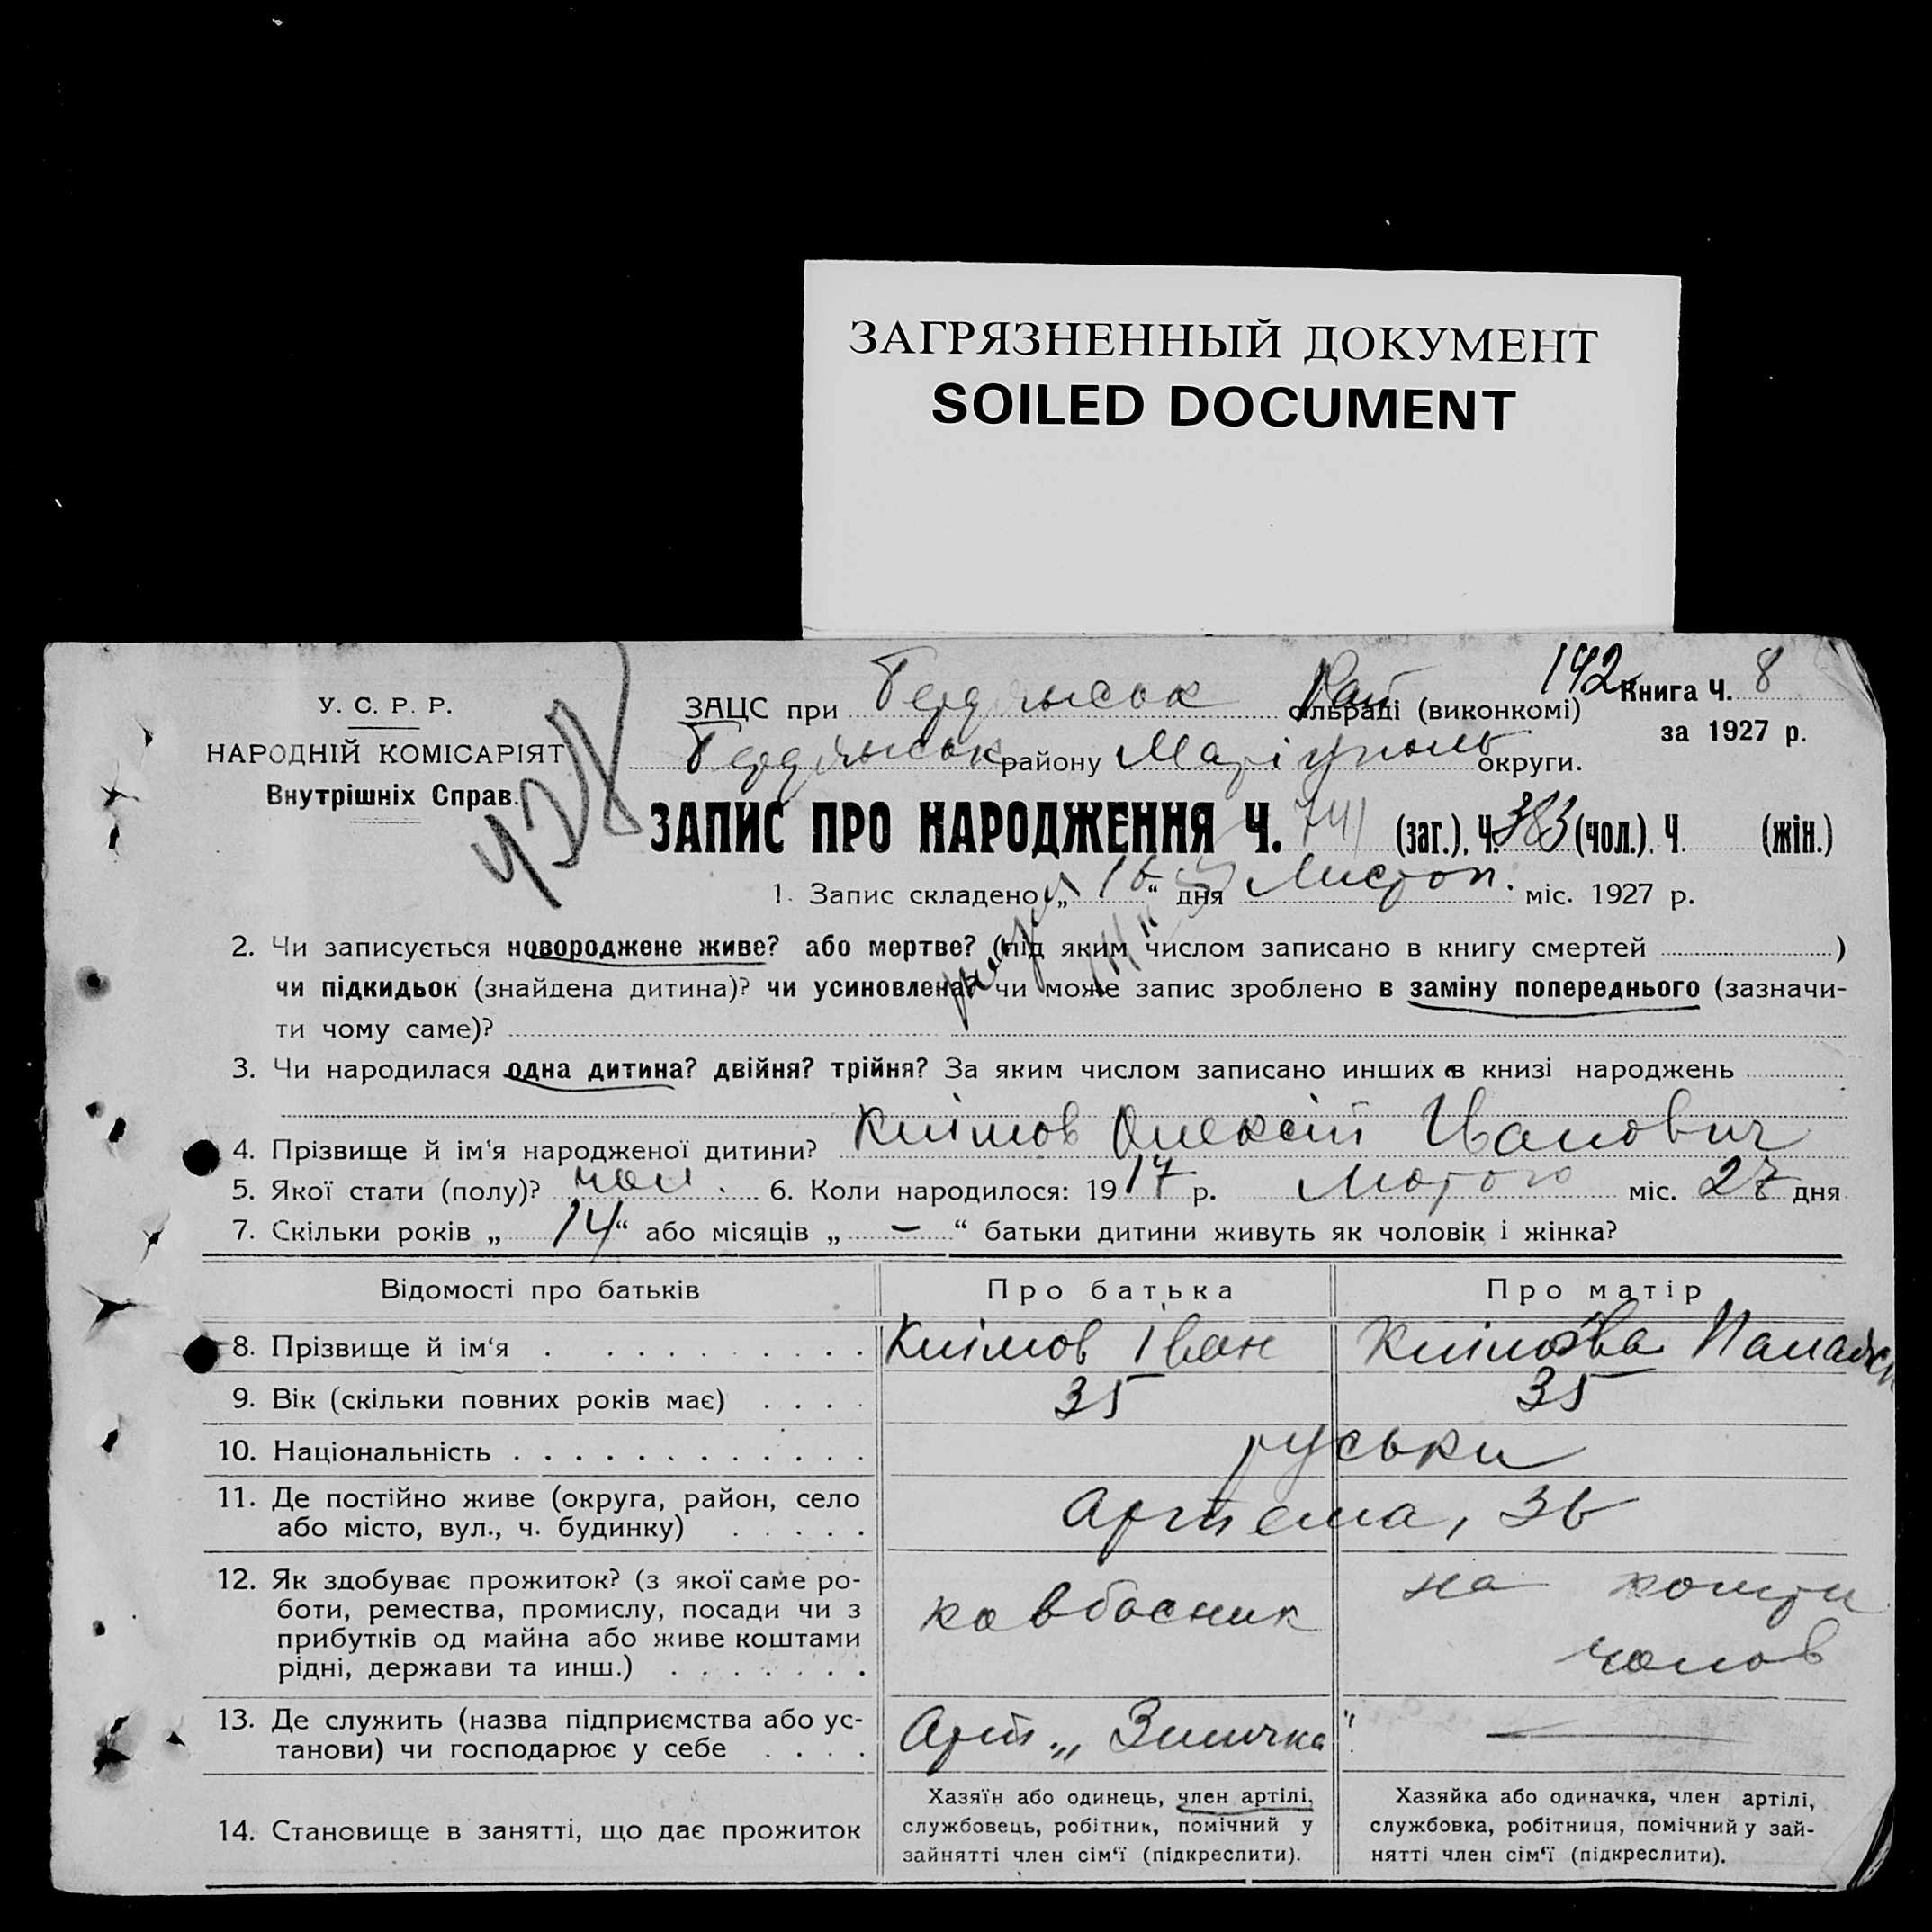 ЗАГРЯЗНЕННЫЙ ДОКУМЕНТ
SOILED DOCUMENT
192 Книга Ч. 8
за 1927 р.
У. С. Р. Р.
НАРОДНІЙ КОМІСАРІЯТ
Внутрішніх Справ.
428
ЗАЦС при Бердянськ Рай сільраді (виконкомі)
Бердянськ району Маріуполь округи.
ЗАПИС ПРО НАРОДЖЕННЯ Ч. 741 (заг.). Ч. 383 (чол.). Ч. (жін.)
1. Запис складено „16“ дня Листоп. міс. 1927 р.
2. Чи записується новороджене живе? або мертве? (під яким числом записано в книгу смертей )
чи підкидьок (знайдена дитина)? чи усиновлена? чи може запис зроблено в заміну попереднього (зазначи-
ти чому саме)?
3. Чи народилася одна дитина? двійня? трійня? За яким числом записано инших в книзі народжень
4. Прізвище й ім‘я народженої дитини? Клімов Олексій Іванович
5. Якої стати (полу)? чол. 6. Коли народилося: 1917 р. Лютого міс. 27 дня
7. Скільки років „14“ або місяців „–“ батьки дитини живуть як чоловік і жінка?
Відомості про батьків Про батька Про матір
8. Прізвище й ім‘я Клімов Іван Клімова
9. Вік (скільки повних років має) 35 35
10. Національність руськи
11. Де постійно живе (округа, район, село
або місто, вул., ч. будинку) Артема, 36
12. Як здобуває прожиток? (з якої саме ро-
боти, ремества, промислу, посади чи з
прибутків од майна або живе коштами
рідні, держави та инш.) ковбасник на кошти
чолов
13. Де служить (назва підприємства або ус-
танови) чи господарює у себе Арт „Змичка“ —
14. Становище в занятті, що дає прожиток
Хазяїн або одинець, член артілі,
службовець, робітник, помічний у
зайнятті член сім‘ї (підкреслити).
Хазяйка або одиначка, член артілі,
службовка, робітниця, помічний у зай-
нятті член сім‘ї (підкреслити).